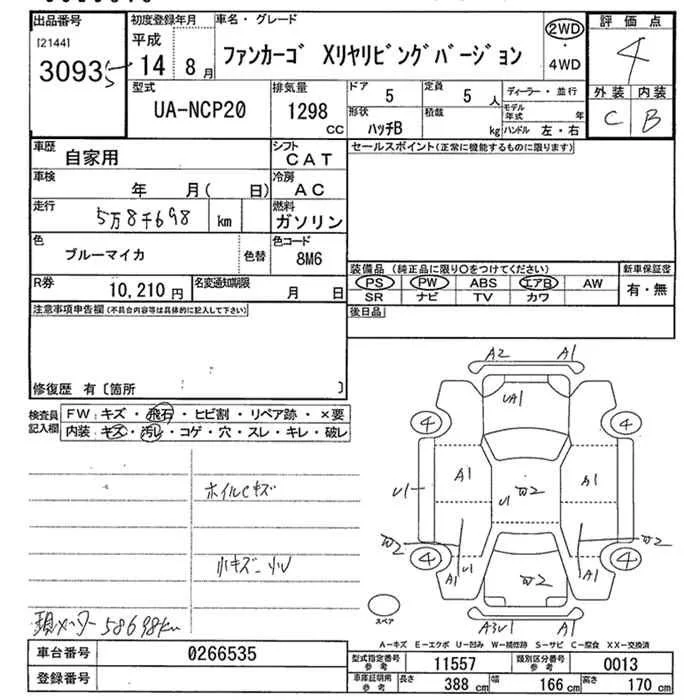 出品番号 初度登録年月 車名・グレード 評価点
[2144] 平成
30935 14 8月 ファンカーゴ Xリヤリビングバージョン 2WD・4WD 4
型式 排気量 ドア 定員 ディーラー・並行 外装 内装
UA-NCP20 1298 CC 5 5人 モデル年式 年 C B
形状 積載 ハンドル 左・右
ハッチB kg
車歴 自家用 シフト CAT セールスポイント(正常に機能するものに限ります)
車検 年 月( 日) 冷房 AC
走行 5万8千698 km 燃料 ガソリン
色 ブルーマイカ 色替 色コード 8M6
装備品(純正品に限り○をつけてください) 新車保証書
R券 10,210円 名変通知期限 月 日 PS PW ABS エアB AW 有・無
SR ナビ TV カワ
注意事項申告欄(不具合内容等は具体的に記入して下さい) 後日品
修復歴 有〔箇所 〕
検査員記入欄 FW:キズ・飛石・ヒビ割・リペア跡・×要
内装:キズ・汚レ・コゲ・穴・スレ・キレ・破レ
A2 A1
UA1
4 4
A1 A1
U1 U1 W2
W2 W2
4 4
A1 U1 A1
W2
A3U1 A1
スペア
ホイルCキズ
小キズ
現メーター58698km
A−キズ E−エクボ U−凹み W−補修跡 S−サビ C−腐食 XX−交換済
車台番号 0266535 型式指定番号参考 11557 類別区分番号参考 0013
登録番号 車庫証明用参考 長さ 388 cm 幅 166 cm 高さ 170 cm